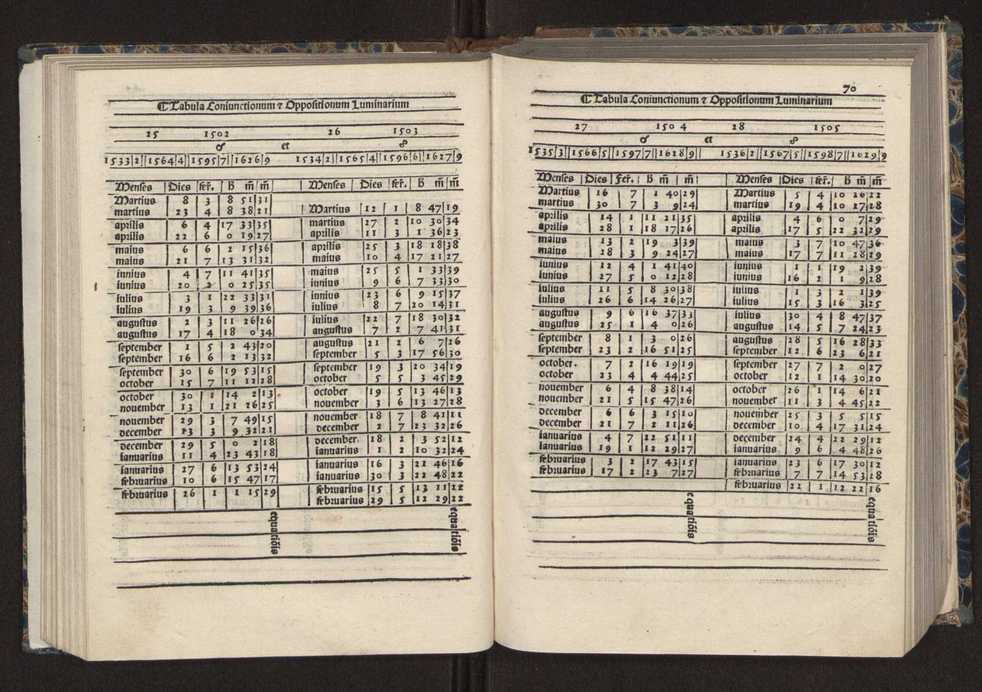 ℂ Tabula Coniunctionum ⁊ Oppositionum Luminarium
25 1502 26 1503
☌ et ☍
1533|2| |1564|4| |1595|7| |1626|9 1534|2| |1565|4| |1596|6| |1627|9
Menses |Dies| fer̄.| h m̄|m̄
Martius 8 3 8 51 31
martius 23 4 8 38 21
aprilis 6 4 17 33 35
aprilis 22 6 0 19 27
maius 6 6 2 15 36
maius 21 7 13 31 32
iunius 4 7 11 41 35
iunius 20 2 0 25 35
iulius 3 1 22 33 31
iulius 19 3 9 39 36
augustus 2 3 11 26 26
augustus 17 4 18 0 34
september 1 5 2 43 20
september 16 6 2 13 32
september 30 6 19 53 15
october 15 7 11 12 28
october 30 1 14 2 13
nouember 13 1 21 26 25
nouember 29 3 7 49 15
december 13 3 9 32 21
december 29 5 0 2 18
ianuarius 11 4 23 43 18
ianuarius 27 6 13 53 24
februarius 10 6 15 47 17
februarius 26 1 1 15 29
equatiōis
Menses |Dies| fer̄.| h m̄|m̄
Martius 12 1 8 47 19
martius 27 2 10 30 34
aprilis 11 3 1 36 23
aprilis 25 3 18 18 38
maius 10 4 17 21 27
maius 25 5 1 33 39
iunius 9 6 7 33 30
iunius 23 6 9 15 37
iulius 8 7 20 14 31
iulius 22 7 18 30 32
augustus 7 2 7 41 31
augustus 21 2 6 7 26
september 5 3 17 56 30
september 19 3 20 34 19
october 5 5 3 45 29
october 19 5 13 46 13
nouember 3 6 13 27 28
nouember 18 7 8 41 11
december 2 7 23 32 26
december 18 2 3 52 12
ianuarius 1 2 10 32 24
ianuarius 16 3 22 46 16
ianuarius 30 3 22 48 22
februarius 15 5 13 11 22
februarius 29 5 12 29 22
equatiōis
70
ℂ Tabula Coniunctionum ⁊ Oppositionum Luminarium
27 1504 28 1505
☌ et ☍
1535|3| |1566|5| |1597|7| |1628|9| 1536|2| |1567|5| |1598|7| |1629|9
Menses |Dies| Fer̄.| h m̄| m̄
Martius 16 7 1 40 29
martius 30 7 3 9 24
aprilis 14 1 11 21 35
aprilis 28 1 18 17 26
maius 13 2 19 3 39
maius 28 3 9 24 27
iunius 12 4 1 41 40
iunius 27 5 0 12 28
iulius 11 5 8 30 38
iulius 26 6 14 26 27
augustus 9 6 16 37 33
augustus 25 1 4 0 26
september 8 1 3 0 26
september 23 2 16 51 25
october 7 2 16 19 19
october 23 4 4 44 25
nouember 6 4 8 38 14
nouember 21 5 15 47 26
december 6 6 3 15 10
december 21 7 2 11 26
ianuarius 4 7 22 51 11
ianuarius 19 1 12 29 27
februarius 3 2 17 43 15
februarius 17 2 23 7 27
equatiōis
Menses |Dies| fer̄.| h m̄| m̄
Martius 5 4 10 26 22
martius 19 4 10 27 28
aprilis 4 6 0 7 29
aprilis 17 5 22 32 29
maius 3 7 10 47 36
maius 17 7 11 28 29
iunius 1 1 19 2 39
iunius 16 2 1 9 28
iulius 1 3 2 1 39
iulius 15 3 16 3 25
iulius 30 4 8 47 37
augustus 14 5 7 24 23
augustus 28 5 16 28 33
september 12 6 23 6 21
september 27 7 2 0 27
october 12 1 14 30 20
october 26 1 14 6 21
nouember 11 3 4 45 22
nouember 25 3 5 5 15
december 10 4 17 31 24
december 24 4 22 29 12
ianuarius 9 6 4 48 26
ianuarius 23 6 17 30 12
februarius 7 7 14 53 18
februarius 22 1 12 22 16
equatiōis